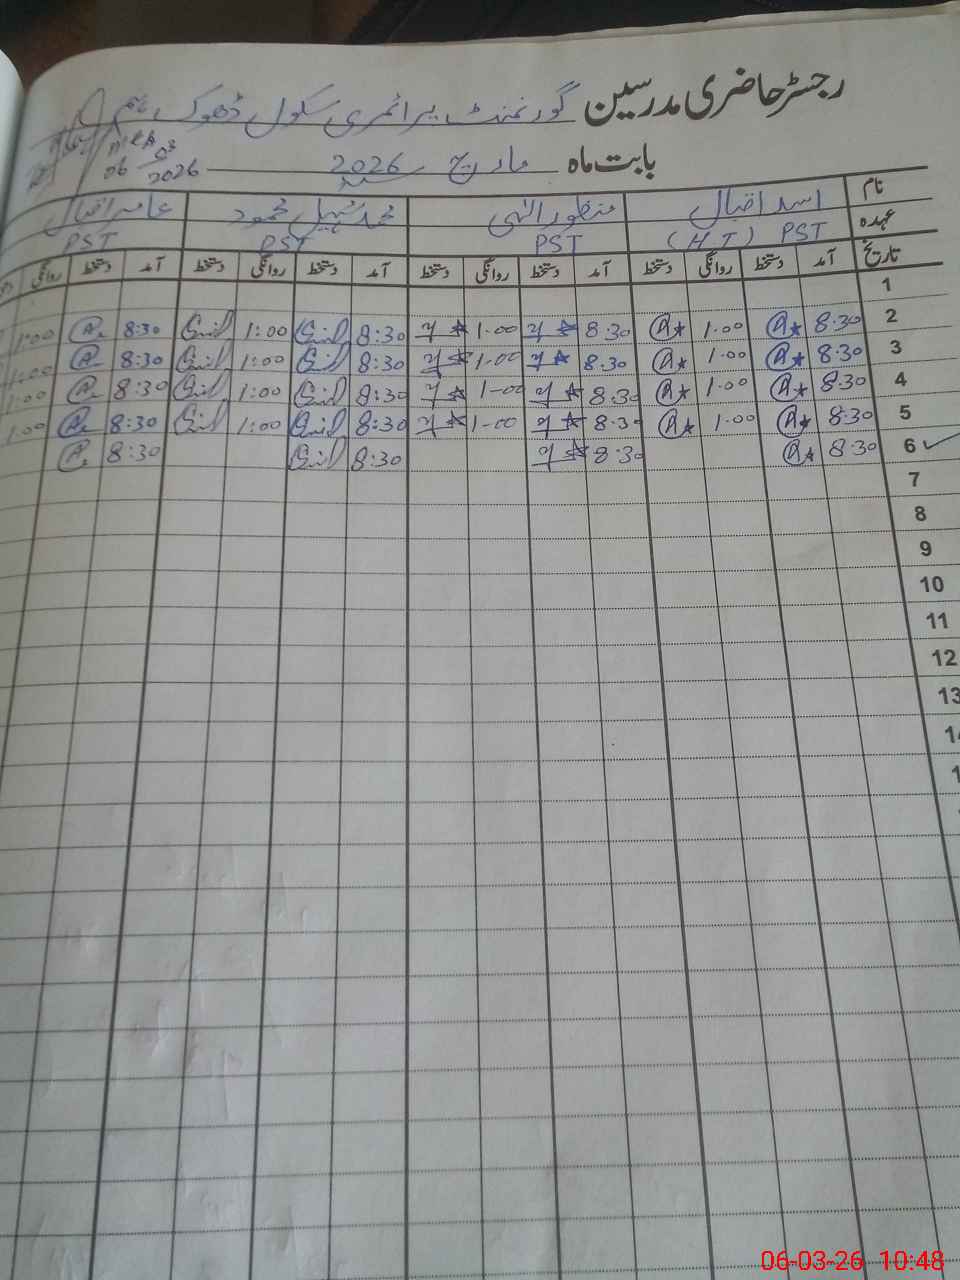 رجسٹر حاضری مدرسین گورنمنٹ پرائمری سکول ڈھوک
بابت ماہ مارچ 2026
06 03 2026
نام اسد اقبال منظور الٰہی محمد سہیل محمود عامر اقبال
عہدہ PST (H.T) PST PST PST
تاریخ آمد دستخط روانگی دستخط آمد دستخط روانگی دستخط آمد دستخط روانگی دستخط آمد دستخط روانگی
1
2 8:30 1:00 8:30 1:00 8:30 1:00 8:30 1:00
3 8:30 1:00 8:30 1:00 8:30 1:00 8:30 1:00
4 8:30 1:00 8:30 1:00 8:30 1:00 8:30 1:00
5 8:30 1:00 8:30 1:00 8:30 1:00 8:30 1:00
6 8:30 8:30 8:30 8:30
7
8
9
10
11
12
13
06-03-26 10:48